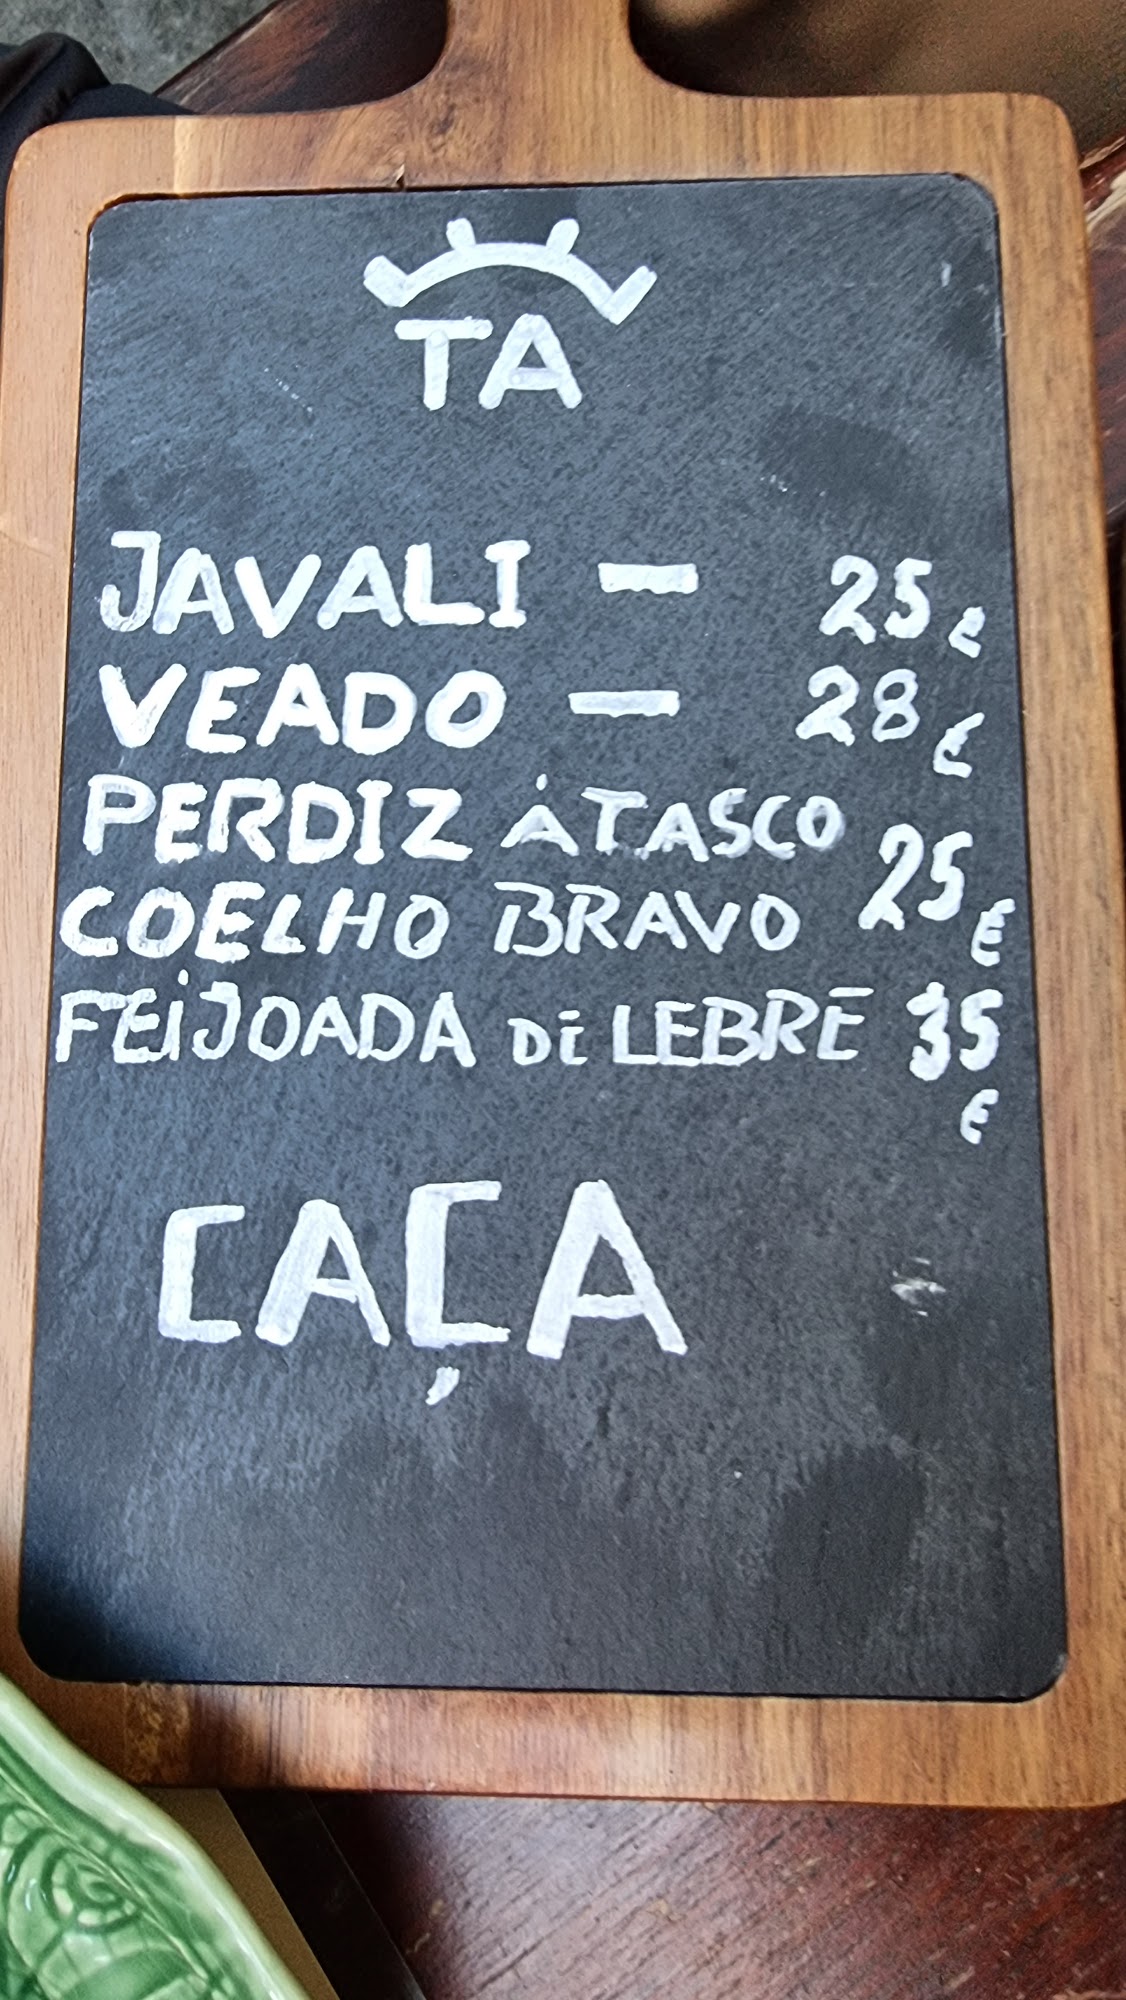 TA
JAVALI - 25€
VEADO - 28€
PERDIZ À TASCO
COELHO BRAVO 25€
FEIJOADA DE LEBRE 35€
CAÇA